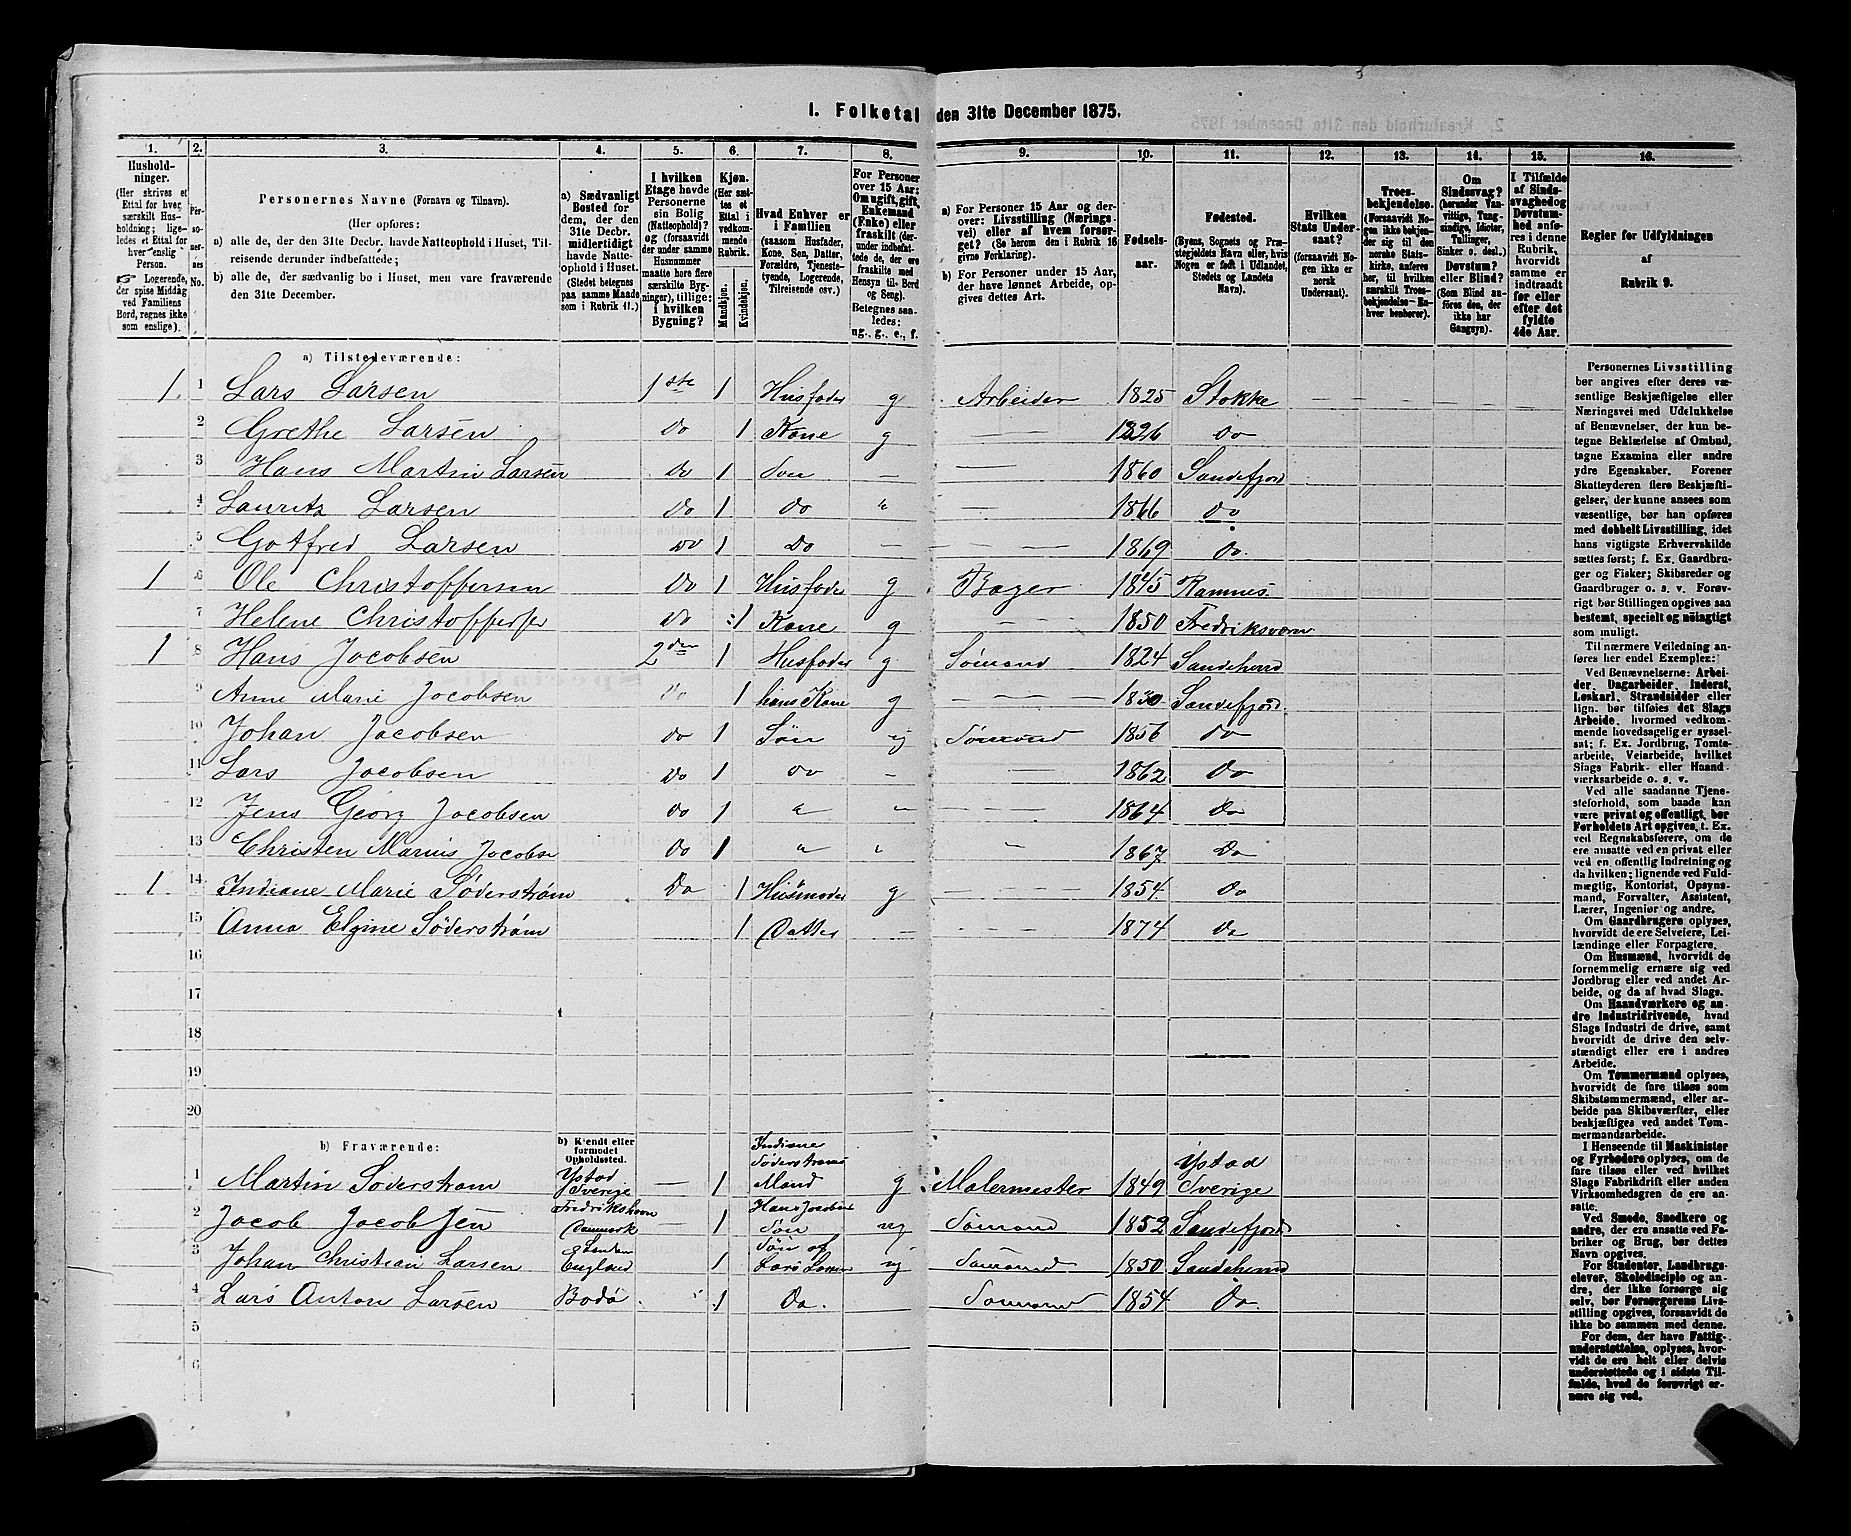 I. Folketal den 31te December 1875.
1. 2. 3. 4. 5. 6. 7. 8. 9. 10. 11. 12. 13. 14. 15. 16.
Hushold-
ninger.
(Her skrives et
Ettal for hver
særskilt Hus-
holdning; lige-
ledes et Ettal for
hver enslig
Person.
Logerende,
der spise Middag
ved Familiens
Bord, regnes ikke
som enslige).
Per-
so-
ner-
nes
No.
Personernes Navne (Fornavn og Tilnavn).
(Her opføres:
a) alle de, der den 31te Decbr. havde Natteophold i Huset, Til-
reisende derunder indbefattede;
b) alle de, der sædvanlig bo i Huset, men vare fraværende
den 31te December.
a) Sædvanligt
Bosted for
dem, der den
31te Decbr.
midlertidigt
havde Natte-
ophold i Huset.
(Stedet betegnes
paa samme Maade
som i Rubrik 11.)
I hvilken
Etage havde
Personerne
sin Bolig
(Natteophold)?
og (forsaavidt
der under samme
Husnummer
maatte høre flere
særskilte Byg-
ninger), tillige:
i hvilken
Bygning?
Kjøn.
(Her sæt-
tes et
Ettal i
vedkom-
mende
Rubrik.
Mandkjøn.
Kvindekjøn.
Hvad Enhver er
i Familien
(saasom Husfader,
Kone, Søn, Datter,
Forældre, Tjeneste-
tyende, Logerende,
Tilreisende osv.)
For Personer
over 15 Aar:
Om ugift, gift,
Enkemand
(Enke) eller
fraskilt (der-
under indbefat-
tede de, der ere
fraskilte med
Hensyn til Bord
og Seng).
Betegnes saa-
ledes:
ug., g., e., f.
a) For Personer 15 Aar og der-
over: Livsstilling (Nærings-
vei) eller af hvem forsør-
get? (Se herom den i Rubrik 16
givne Forklaring).
b) For Personer under 15 Aar,
der have lønnet Arbeide, op-
gives dettes Art.
Fødsels-
aar.
Fødested.
(Byens, Sognets og Præ-
stegjeldets Navn eller, hvis
Nogen er født i Udlandet,
Stedets og Landets
Navn).
Hvilken
Stats Under-
saat?
(forsaavidt No-
gen ikke er
norsk
Undersaat).
Troes-
bekjendelse.
(Forsaavidt No-
gen ikke bekjen-
der sig til den
norske Stats-
kirke, anføres
her, til hvilken
særskilt Troes-
bekjendelse En-
hver henhører).
Om
Sindssvag?
(herunder Van-
vittige, Tung-
sindige, Idioter,
Tullinger,
Sinker o. desl.).
Døvstum?
eller Blind?
(Som Blind an-
føres den, der
ikke har
Gangsyn).
I Tilfælde
af Sinds-
svaghed og
Døvstum-
hed, anfø-
res i denne
Rubrik,
hvorvidt
samme er
indtraadt
før eller
efter det
fyldte
4de Aar.
Regler for Udfyldningen
af
Rubrik 9.
a) Tilstedeværende:
1 1 Lars Larsen 1ste 1 Husfader g Arbeider 1825 Stokke
2 Grethe Larsen do 1 Kone g 1826 do
3 Hans Martin Larsen do 1 Søn 1860 Sandefjord
4 Lauritz Larsen do 1 do " 1866 do
5 Gotfred Larsen do 1 do 1869 do
1 6 Ole Christoffersen do 1 Husfader g Bager 1845 Ramnes
7 Helene Christoffer do 1 Kone g 1850 Fredriksværn
1 8 Hans Jacobsen 2den 1 Husfader g Sømand 1824 Sandeherred
9 Anne Marie Jacobsen do 1 hans Kone g 1830 Sandefjord
10 Johan Jacobsen do 1 Søn ug Sømand 1856 do
11 Lars Jacobsen do 1 do 1862 do
12 Jens Georg Jacobsen do 1 " 1864 do
13 Christen Marius Jacobse do 1 " " " 1867 do
1 14 Indiane Marie Søderstrøm do 1 Husmoder g 1854 do
15 Anna Elgine Søderstrøm 1 Datter 1874 do
16
17
18
19
20
b) Fraværende:
b) Kjendt eller
formodet
Opholdssted.
1 Martin Søderstrøm Ystad Sverige 1 Indiane Søderstrøms Mand g Malermester 1849 Ystad Sverige
2 Jacob Jacobsen Fredrikshavn Danmark 1 Hans Jacobsens Søn ug Sømand 1852 Sandefjord
3 Johan Christian Larsen England 1 Søn af Lars Larsen ug Sømand 1850 Sandeherred
4 Lars Anton Larsen Bodø 1 Do. Sømand 1854 Do.
5
6
Personernes Livsstilling
bør angives efter deres væ-
sentlige Beskjæftigelse eller
Næringsvei med Udelukkelse
af Benævnelser, der kun be-
tegne Beklædelse af Ombud,
tagne Examina eller andre
ydre Egenskaber. Forener
Skatteyderen flere Beskjæfti-
gelser, der kunne ansees som
væsentlige, bør han opføres
med dobbelt Livsstilling, idet
hans vigtigste Erhvervskilde
sættes først; f. Ex. Gaardbru-
ger og Fisker; Skibsreder og
Gaardbruger o. s. v. Forøv-
rigt bør Stillingen opgives saa
bestemt, specielt og nøiagtigt
som muligt.
Til nærmere Veiledning an-
føres her endel Exempler:
Ved Benævnelserne: Arbei-
der, Dagarbeider, Inderst,
Løskarl, Strandsidder eller
lign. bør tilføies det Slags
Arbeide, hvormed vedkom-
mende hovedsagelig er syssel-
sat; f. Ex. Jordbrug, Tomte-
arbeide, Veiarbeide, hvilket
Slags Fabrik- eller Haand-
værksarbeide o. s. v.
Ved alle saadanne Tjene-
steforhold, som baade kan
være privat og offentligt, bør
Forholdets Art opgives, t. Ex.
ved Regnskabsførere, om de
ere ansatte ved en privat eller
ved en offentlig Indretning og
da hvilken; lignende ved Fuld-
mægtig, Kontorist, Opsyns-
mand, Forvalter, Assistent,
Lærer, Ingeniør og andre.
Om Gaardbrugere oplyses,
hvorvidt de ere Selveiere, Lei-
lændinge eller Forpagtere.
Om Husmænd, hvorvidt de
fornemmelig ernære sig ved
Jordbrug eller ved andet Ar-
beide, og da af hvad Slags.
Om Haandværkere og an-
dre Industridrivende, hvad
Slags Industri de drive, samt
hvorvidt de drive den selv-
stændigt eller ere i andres
Arbeide.
Om Tømmermænd oplyses,
hvorvidt de fare tilsøs som
Skibstømmermænd, eller ar-
beide paa Skibsværfter, eller
beskjæftiges ved andet Tøm-
mermandsarbeide.
I Henseende til Maskinister
og Fyrbødere oplyses, om de
fare tilsøs eller ved hvilket
Slags Fabrikdrift eller anden
Virksomhedsgren de ere an-
satte.
Ved Smede, Snedkere og
andre, der ere ansatte ved Fa-
briker og Brug, bør dettes
Navn opgives.
For Studenter, Landbrugs-
elever, Skoledisciple og an-
dre, der ikke forsørge sig
selv, bør Forsørgerens Livs-
stilling opgives, forsaavidt de
ikke bo sammen med denne.
For dem, der have Fattig-
understøttelse, oplyses, hvor-
vidt de ere helt eller delvis
understøttede og i sidste Til-
fælde, hvad de forøvrigt er-
nære sig ved.